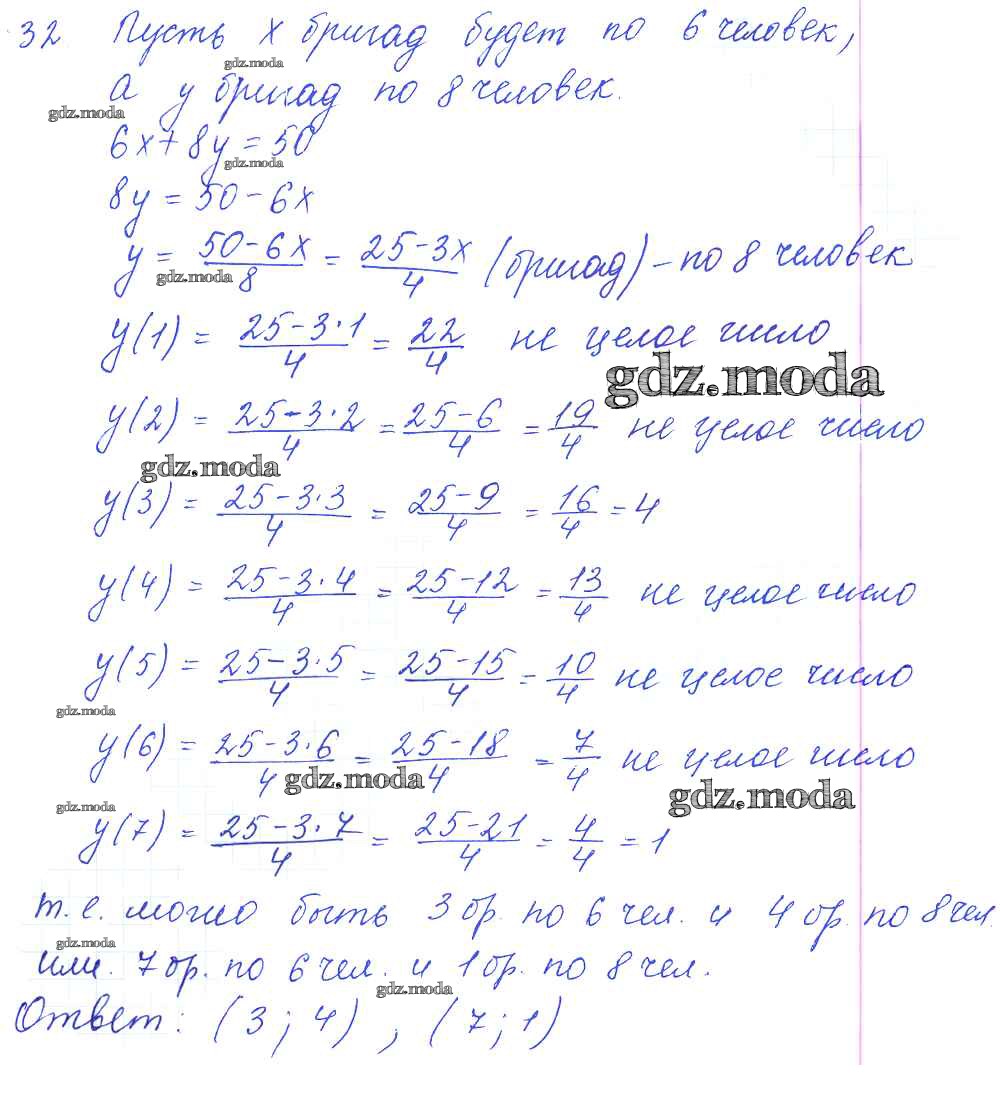 32 Пусть x бригад будет по 6 человек,
gdz.moda
а y бригад по 8 человек.
gdz.moda
6x + 8y = 50
gdz.moda
8y = 50 - 6x
y = (50 - 6x)/8 = (25 - 3x)/4 (бригад) - по 8 человек
gdz.moda
y(1) = (25 - 3·1)/4 = 22/4 не целое число
gdz.moda
y(2) = (25 - 3·2)/4 = (25 - 6)/4 = 19/4 не целое число
gdz.moda
y(3) = (25 - 3·3)/4 = (25 - 9)/4 = 16/4 = 4
y(4) = (25 - 3·4)/4 = (25 - 12)/4 = 13/4 не целое число
y(5) = (25 - 3·5)/4 = (25 - 15)/4 = 10/4 не целое число
gdz.moda
y(6) = (25 - 3·6)/4 = (25 - 18)/4 = 7/4 не целое число
gdz.moda
gdz.moda
gdz.moda
y(7) = (25 - 3·7)/4 = (25 - 21)/4 = 4/4 = 1
т.е. могло быть 3 бр. по 6 чел. и 4 бр. по 8 чел.
gdz.moda
или. 7 бр. по 6 чел. и 1 бр. по 8 чел.
gdz.moda
Ответ: (3; 4), (7; 1)